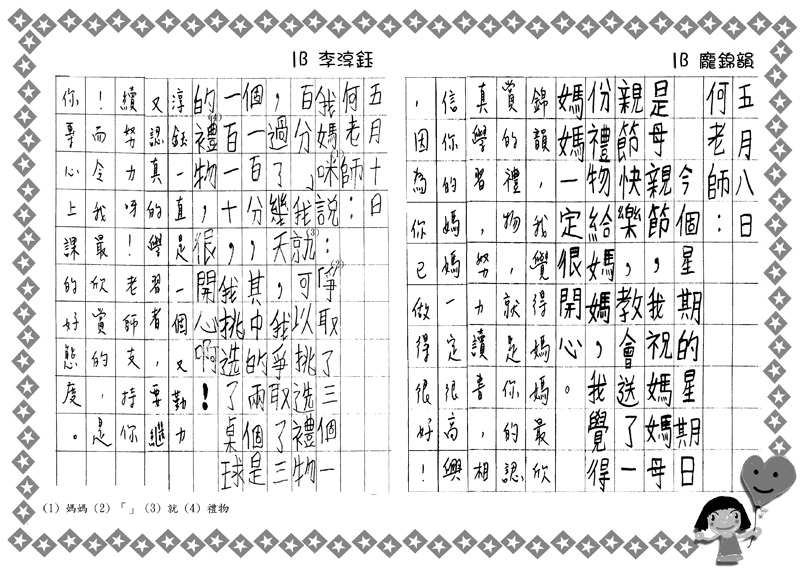 1B 龐錦韻
五月八日
何老師：
今個星期的星期日
是母親節，我祝媽媽母
親節快樂，教會送了一
份禮物給媽媽，我覺得
媽媽一定很開心。
錦韻，我覺得媽媽最欣
賞的禮物，就是你的認
真學習，努力讀書，相
信你的媽媽一定很高興
，因為你已做得很好！
1B 李淳鈺
五月十日
何老師：
我媽咪(1)說：(2)爭取了三個一
百分，我就(3)可以挑選禮物
，過了幾天，我爭取了三
個一百分，其中的兩個是
一百一十，我挑選了桌球
的禮(4)物，很開心啊！
淳鈺一直是一個又勤力
又認真的學習者，要繼
續努力呀！老師支持你
！而令我最欣賞的，是
你專心上課的好態度。
(1) 媽媽 (2) 「」 (3) 就 (4) 禮物